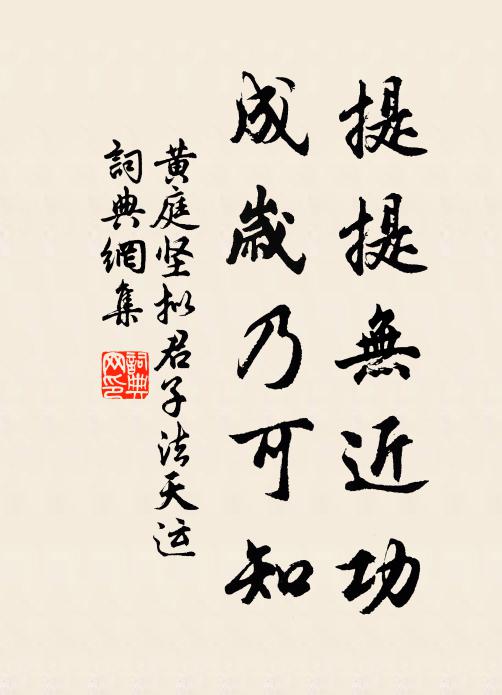 提提無近功
成歲乃可知
黄庭坚拟君子法天运
詞典網集
詞典网印